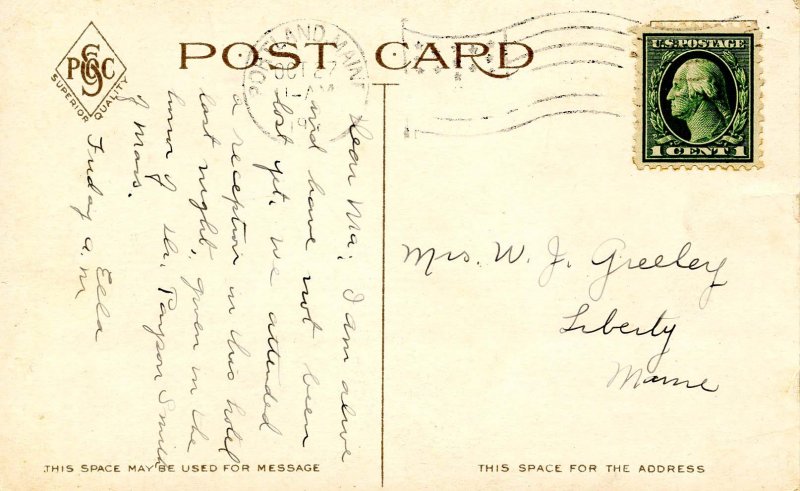 POST CARD
SUPERIOR QUALITY
PORTLAND, MAINE
OCT
U.S. POSTAGE
1 CENT 1
Dear Ma: I am alive
and have not been
lost yet. We attended
a reception in this hotel
last night, given in the
honor of Dr. Payson Smith
of Mass.
Ella
Friday a.m
Mrs. W. J. Greeley
Liberty
Maine
THIS SPACE MAY BE USED FOR MESSAGE
THIS SPACE FOR THE ADDRESS